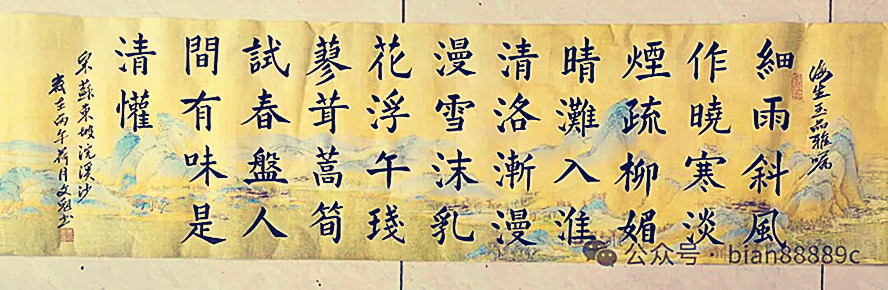 海生玉品雅嘱
細雨斜風
作曉寒淡
煙疏柳媚
晴灘入淮
清洛漸漫
漫雪沫乳
花浮午琖
蓼茸蒿筍
試春盤人
間有味是
清懽
宋蘇東坡浣溪沙
歲在丙午荷月文书
公众号·bian88889c